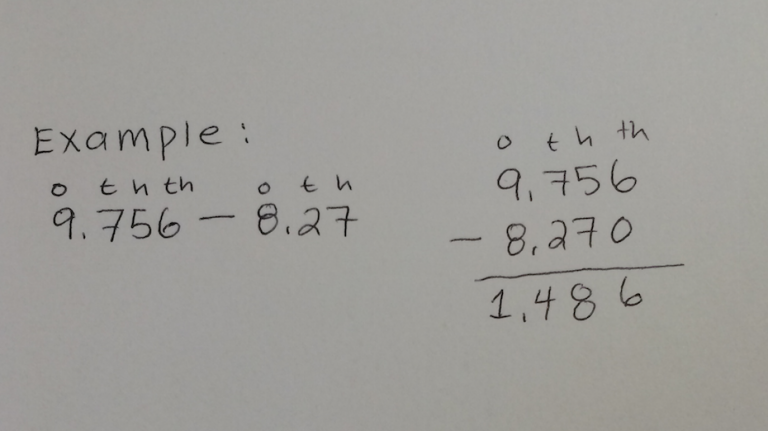 Example:
o t h th o t h
9.756 - 8.27
o t h th
9.756
- 8.270
1.486